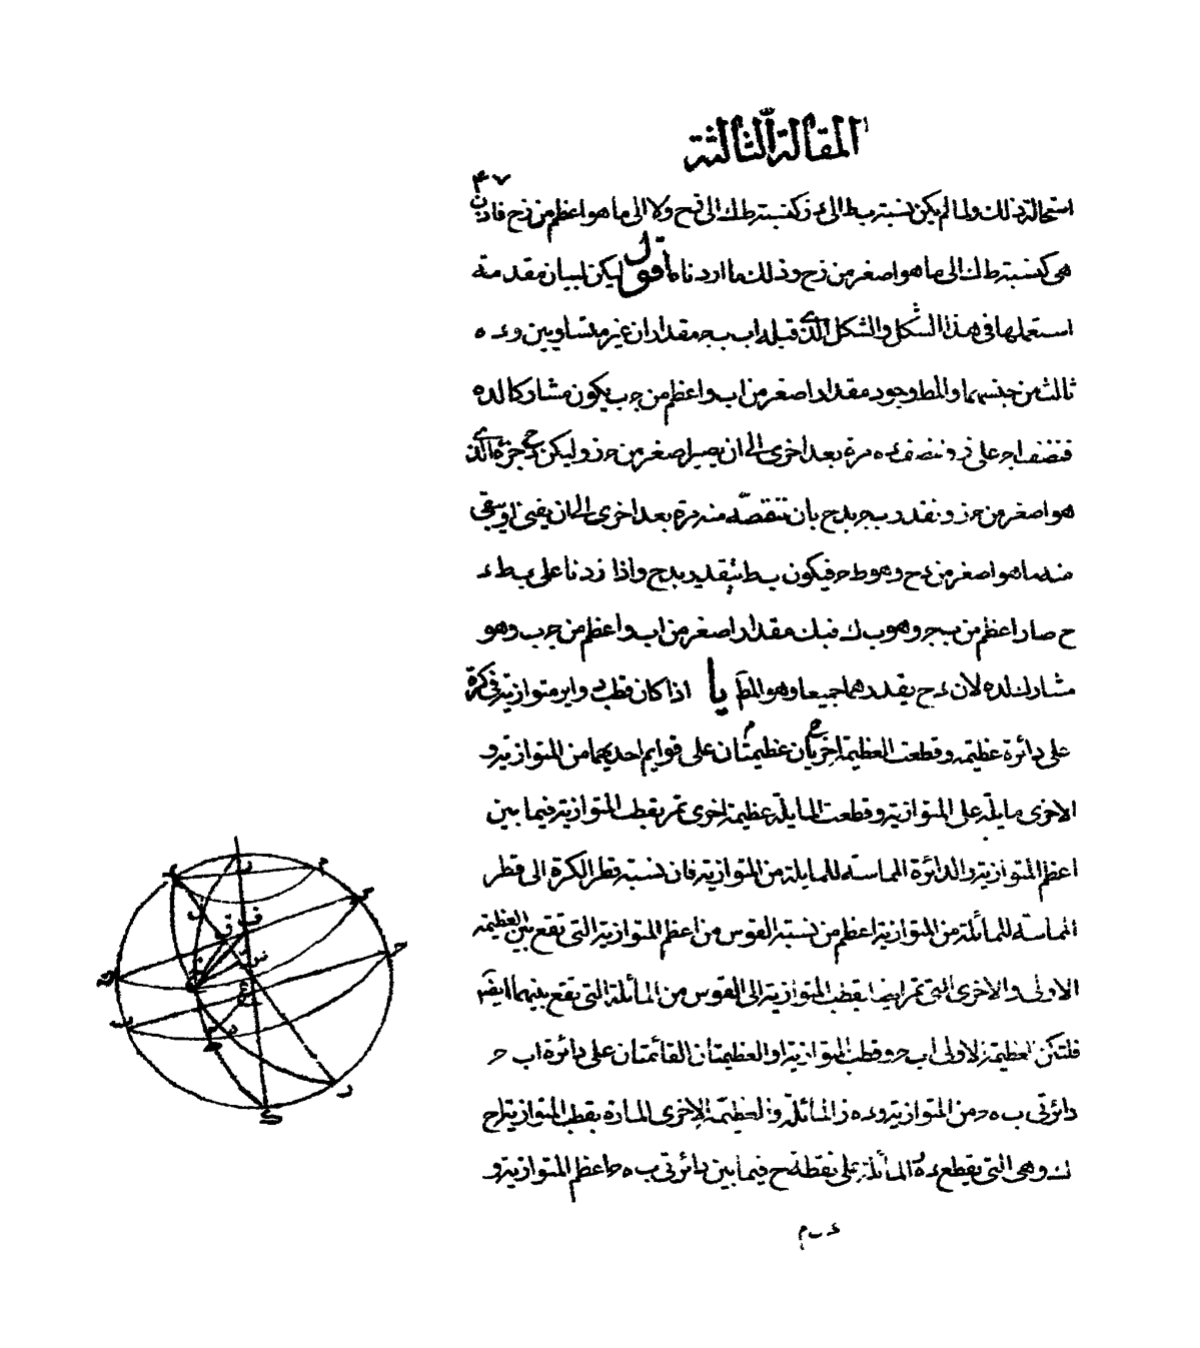 المقالة الثالثة
٤٧
استحالة ذلك ولما لم يكن نسبة ب ط الى ء ز كنسبة ط ك الى ز ح ولا الى ما هو اعظم من ز ح فاذن
هى كنسبة ط ك الى ما هو اصغر من ز ح وذلك ما اردناه اقول ليكن لبيان مقدمته
استعملها فى هذا الشكل والشكل الذى قبله ا ب ب ج مقداران غير متساويين و ء ه
ثالث من جنسهما والمط وجود مقدار اصغر من ا ب واعظم من ج ب يكون مشاركا لـ ء ه
فننصف ا ج على ز وننصف ء ه مرة بعد اخرى الى ان يصير اصغر من ج ز وليكن ء ح جزءه الذى
هو اصغر من ج ز ونقدر ب ج بـ ء ح بان ننقصه منه مرة بعد اخرى الى ان يفنى او يبقى
منه ما هو اصغر من ء ح وهو ط ج فيكون ب ط يتقدر بـ ء ح واذا زدنا على ب ط ء
ح صار اعظم من ب ج وهو ب ك فب ك مقدار اصغر من ا ب واعظم من ج ب وهو
مشارك لـ ء ه لان ء ح يقدرهما جميعا وهو المط يا اذا كان قطب دواير متوازية فى كرة
على دائرة عظيمة وقطعت العظيمة اخريان عظيمتان على قوايم احديهما من المتوازية و
الاخرى مايلة على المتوازية وقطعت المايلة عظيمة اخرى تمر بقطب المتوازية فيما بين
اعظم المتوازية والدائرة المماسة للمايلة من المتوازية فان نسبة قطر الكرة الى قطر
المماسة للمائلة من المتوازية اعظم من نسبة القوس من اعظم المتوازية التى تقع بين العظيمة
الاولى والاخرى التى تمر ايضا بقطب المتوازية الى القوس من المائلة التى تقع بينهما ايضا
فلتكن العظيمة الاولى ا ب ج وقطب المتوازية ا والعظيمتان القائمتان على دائرة ا ب ج
دائرتى ب ه ج من المتوازية و ء ه ز المائلة والعظيمة الاخرى المارة بقطب المتوازية ا ح
ك وهى التى يقطع ء ه المائلة على نقطة ح فيما بين دائرتى ب ه ج اعظم المتوازية و
ء ب م